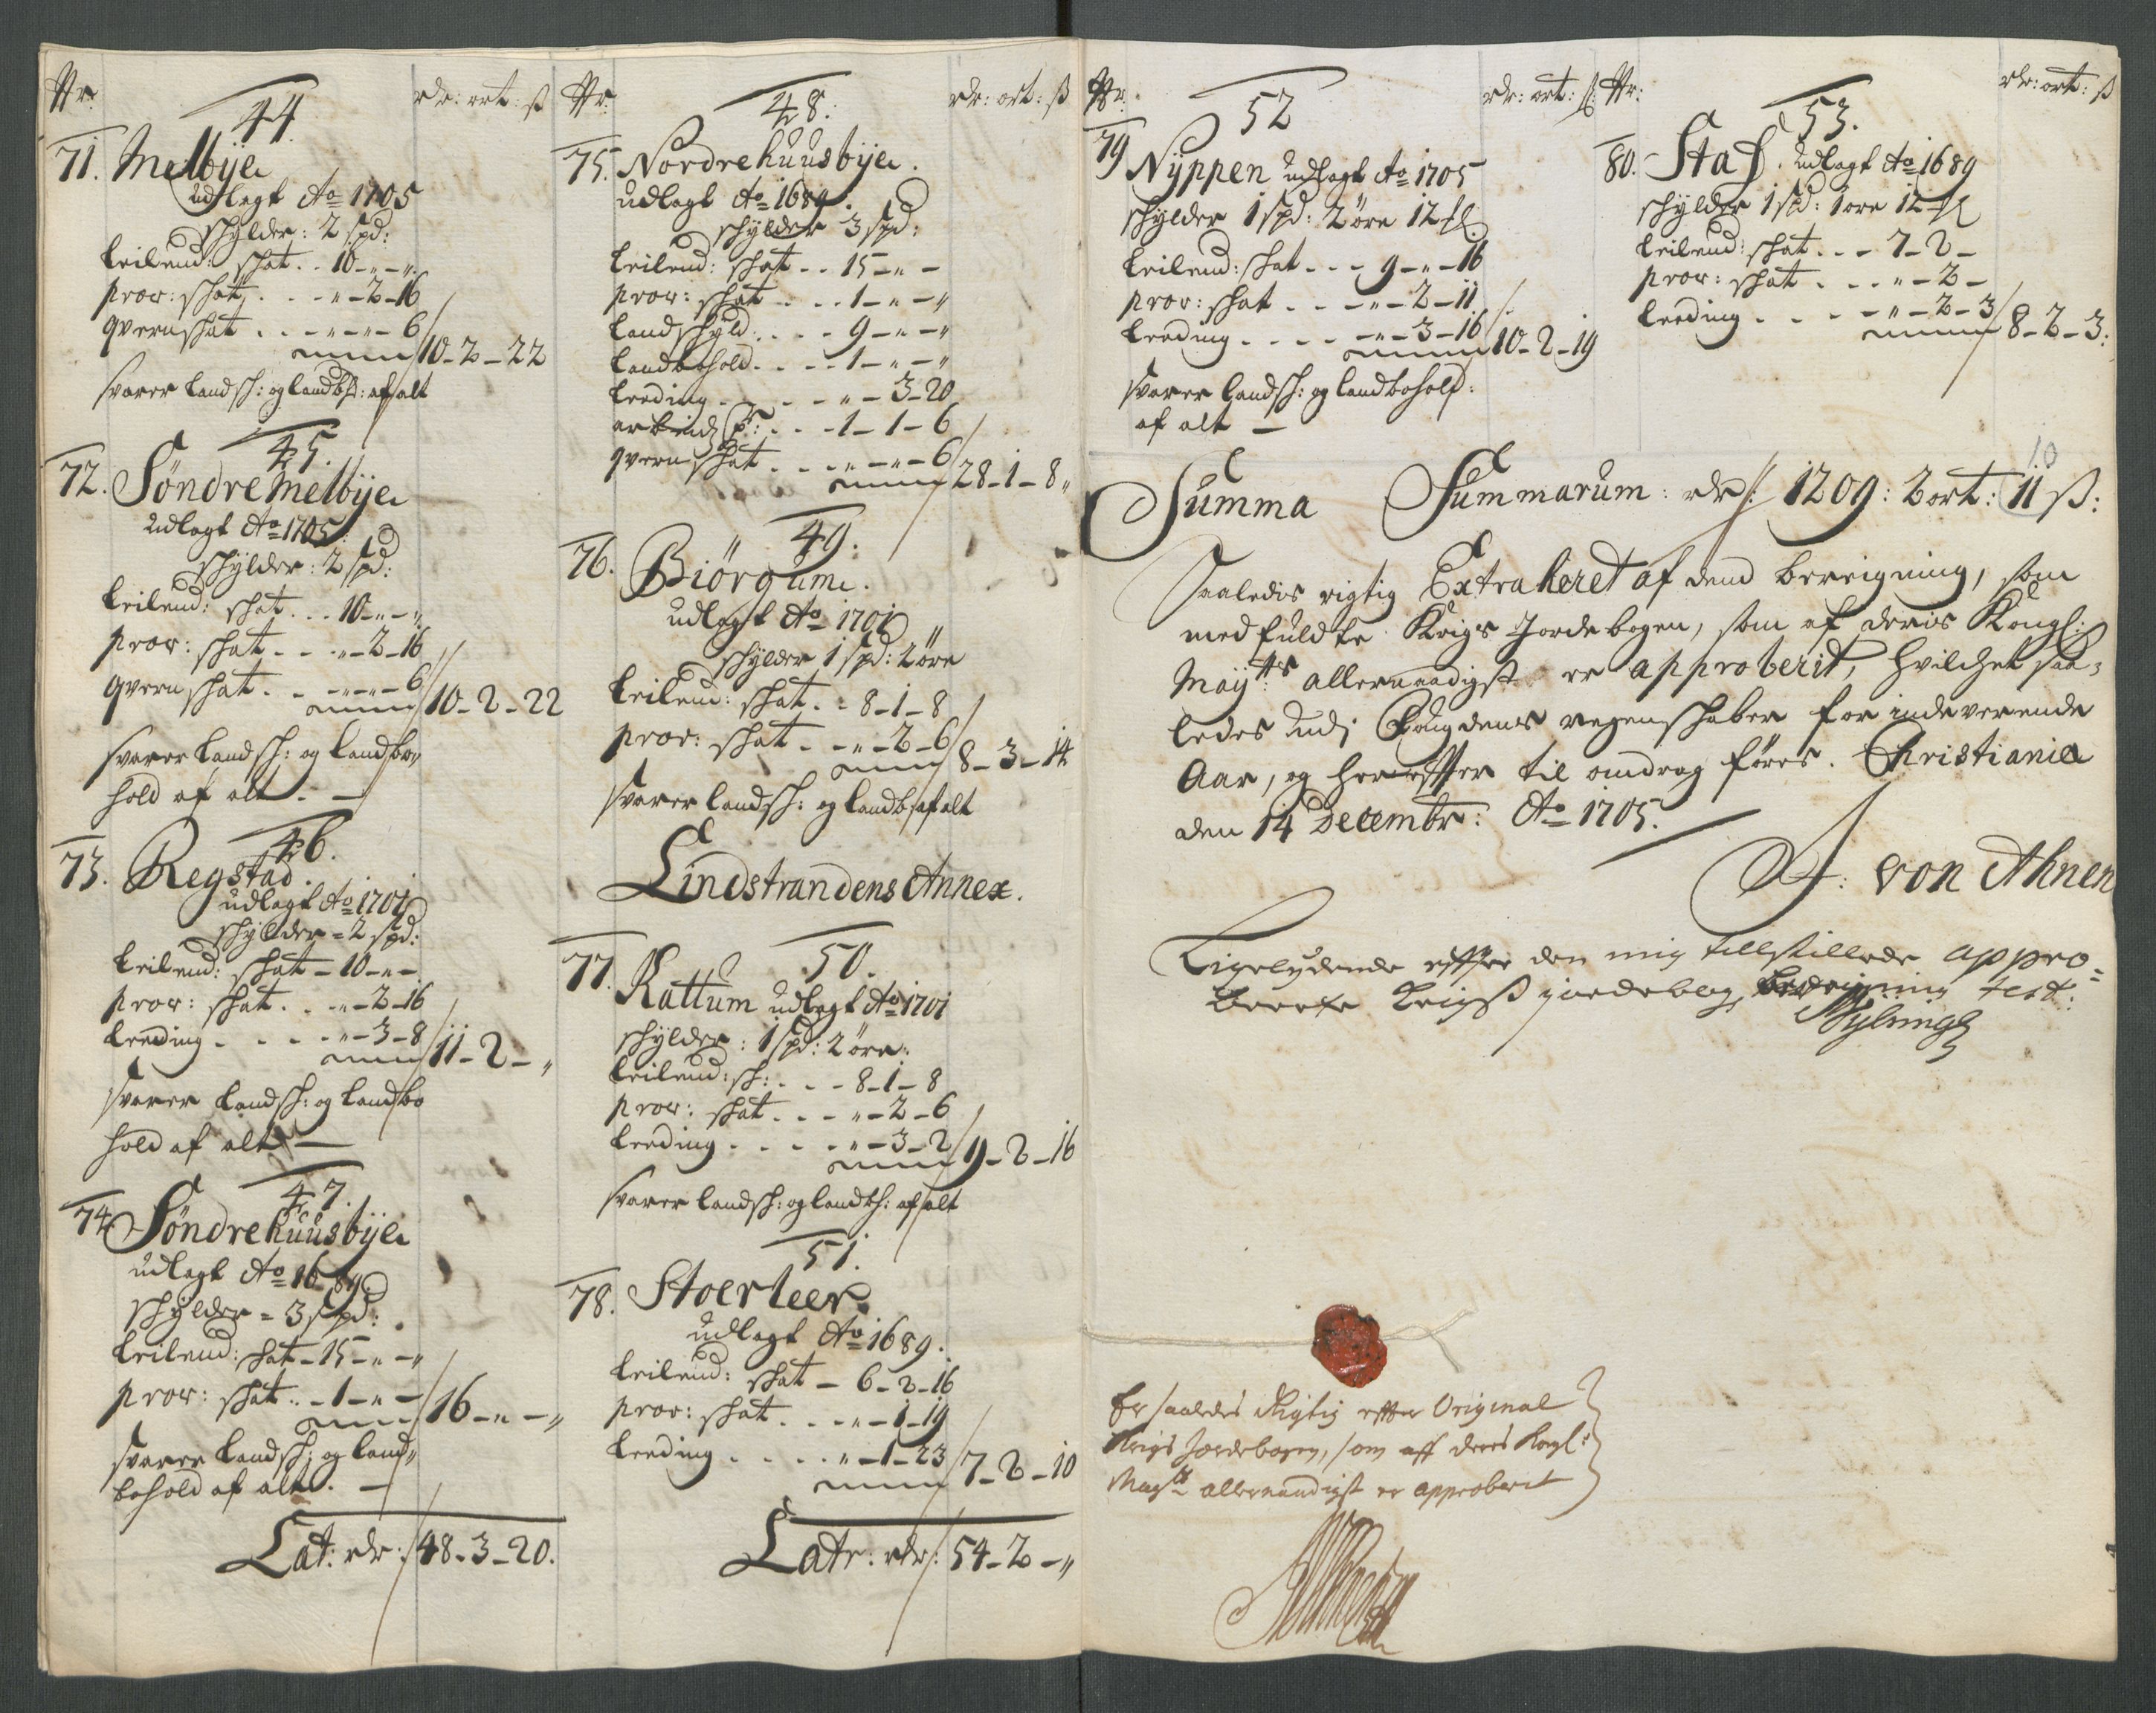 Nr.
rdr: ort: ß
44.
71. Melbÿe
udlagt Ao 1705
schÿlder: 2 spd:
Leilend: schat . . 10 - " - "
prov: schat . . . " - 2 - 16
qvernschat . . - " - " - 6
10 - 2 - 22
svarer landsch: og landbh: af alt
45.
72. Söndre Melbÿe
udlagt Ao 1705
schÿlder: 2 spd:
Leilend: schat . . 10 - " - "
prov: schat . . . " - 2 - 16
qvernschat . . - " - " - 6
10 - 2 - 22
svarer landsch: og landbo-
hold af alt. —
46.
73. Regstad.
udlagt Ao 1701
schÿlder = 2 spd:
Leilend: schat - 10 - " -
prov: schat . . " - 2 - 16
Leeding . . . . " - 3 - 8
11 - 2 - "
svarer landsch: og landbo
hold af alt —
47.
74. Söndre huusbÿe
udlagt Ao 1689
schÿlder = 3 spd:
Leilend: schat - 15 - " - "
prov: schat . . 1 - " -
16 - " - "
svarer landsch: og land-
bohold af alt. —
Lat: rdr: 48 - 3 - 20.
Nr.
rdr: ort: ß
48.
75. Nordre huusbÿe.
udlagt Ao 1689.
schÿlder 3 spd:
Leilend: schat . . 15 - " -
prov: schat . . . 1 - " - "
Landschÿld: . . . 9 - " - "
Landbohold . . . . 1 - " - "
Leeding . . . . . " - 3 - 20
arbeidz p: . . . 1 - 1 - 6
qvernschat . . . " - " - 6
28 - 1 - 8 "
49.
76. Biörgum.
udlagt Ao 1701
schÿlder 1 spd: 2 öre
Leilend: schat . . 8 - 1 - 8
prov: schat . . . " - 2 - 6
8 - 3 - 14
svarer landsch: og landb: af alt
Lindstrandens Annex.
50.
77. Rattum udlagt Ao 1701
schÿlder: 1 spd: 2 öre.
Leilend: sch: . . . 8 - 1 - 8
prov: schat . . . " - 2 - 6
Leeding . . . . . " - 3 - 2
9 - 2 - 16
svarer landsch: og landbh: af alt
51.
78. Stoerleer.
udlagt Ao 1689.
Leilend: schat - 6 - 2 - 16
prov: schat . . . " - 1 - 19
Leeding . . . . . " - 1 - 23
7 - 2 - 10
Latr: rdr: 54 - 2 - "
Nr.
rdr: ort: ß
52
79 Nÿppen udlagt Ao 1705
schÿlder 1 spd: 2 öre 12 sl
Leilend: schat . . . 9 - " - 16
prov: schat . . . " - 2 - 11
Leeding . . . . " - 3 - 16
10 - 2 - 19
svarer landsch: og landbohold:
af alt —
Nr:
rdr: ort: ß
53.
80. Staf. udlagt Ao 1689
schÿlder 1 spd: 1 öre 12 sl
Leilend: schat . . . 7 - 2 -
prov: schat . . . " - 2 -
Leeding . . . . " - 2 - 3
8 - 2 - 3:
10
Summa Summarum: rdr: 1209: 2 ort: 11 ß:
Saaledis rigtig Extraheret af dend bereigning, som
medfuldte Krigs Jordebogen, som af deris Kongl:
Maÿtts allernaadigst er approberit, hvilchet saa-
ledes udj Fougdens regenschaber for indeverende
Aar, og hereffter til omdrag föres. Christiania
den 14 Decembr: Ao 1705.
J: von Ahnen
Ligelydende effter den mig tillstillede appro-
beerte Krigs jordebog, bereigning test:
Er saaledes Rigtig effter Original
Krigs Jordebogen, som aff deres Kongl:
Maytt allernaadigst er approberit